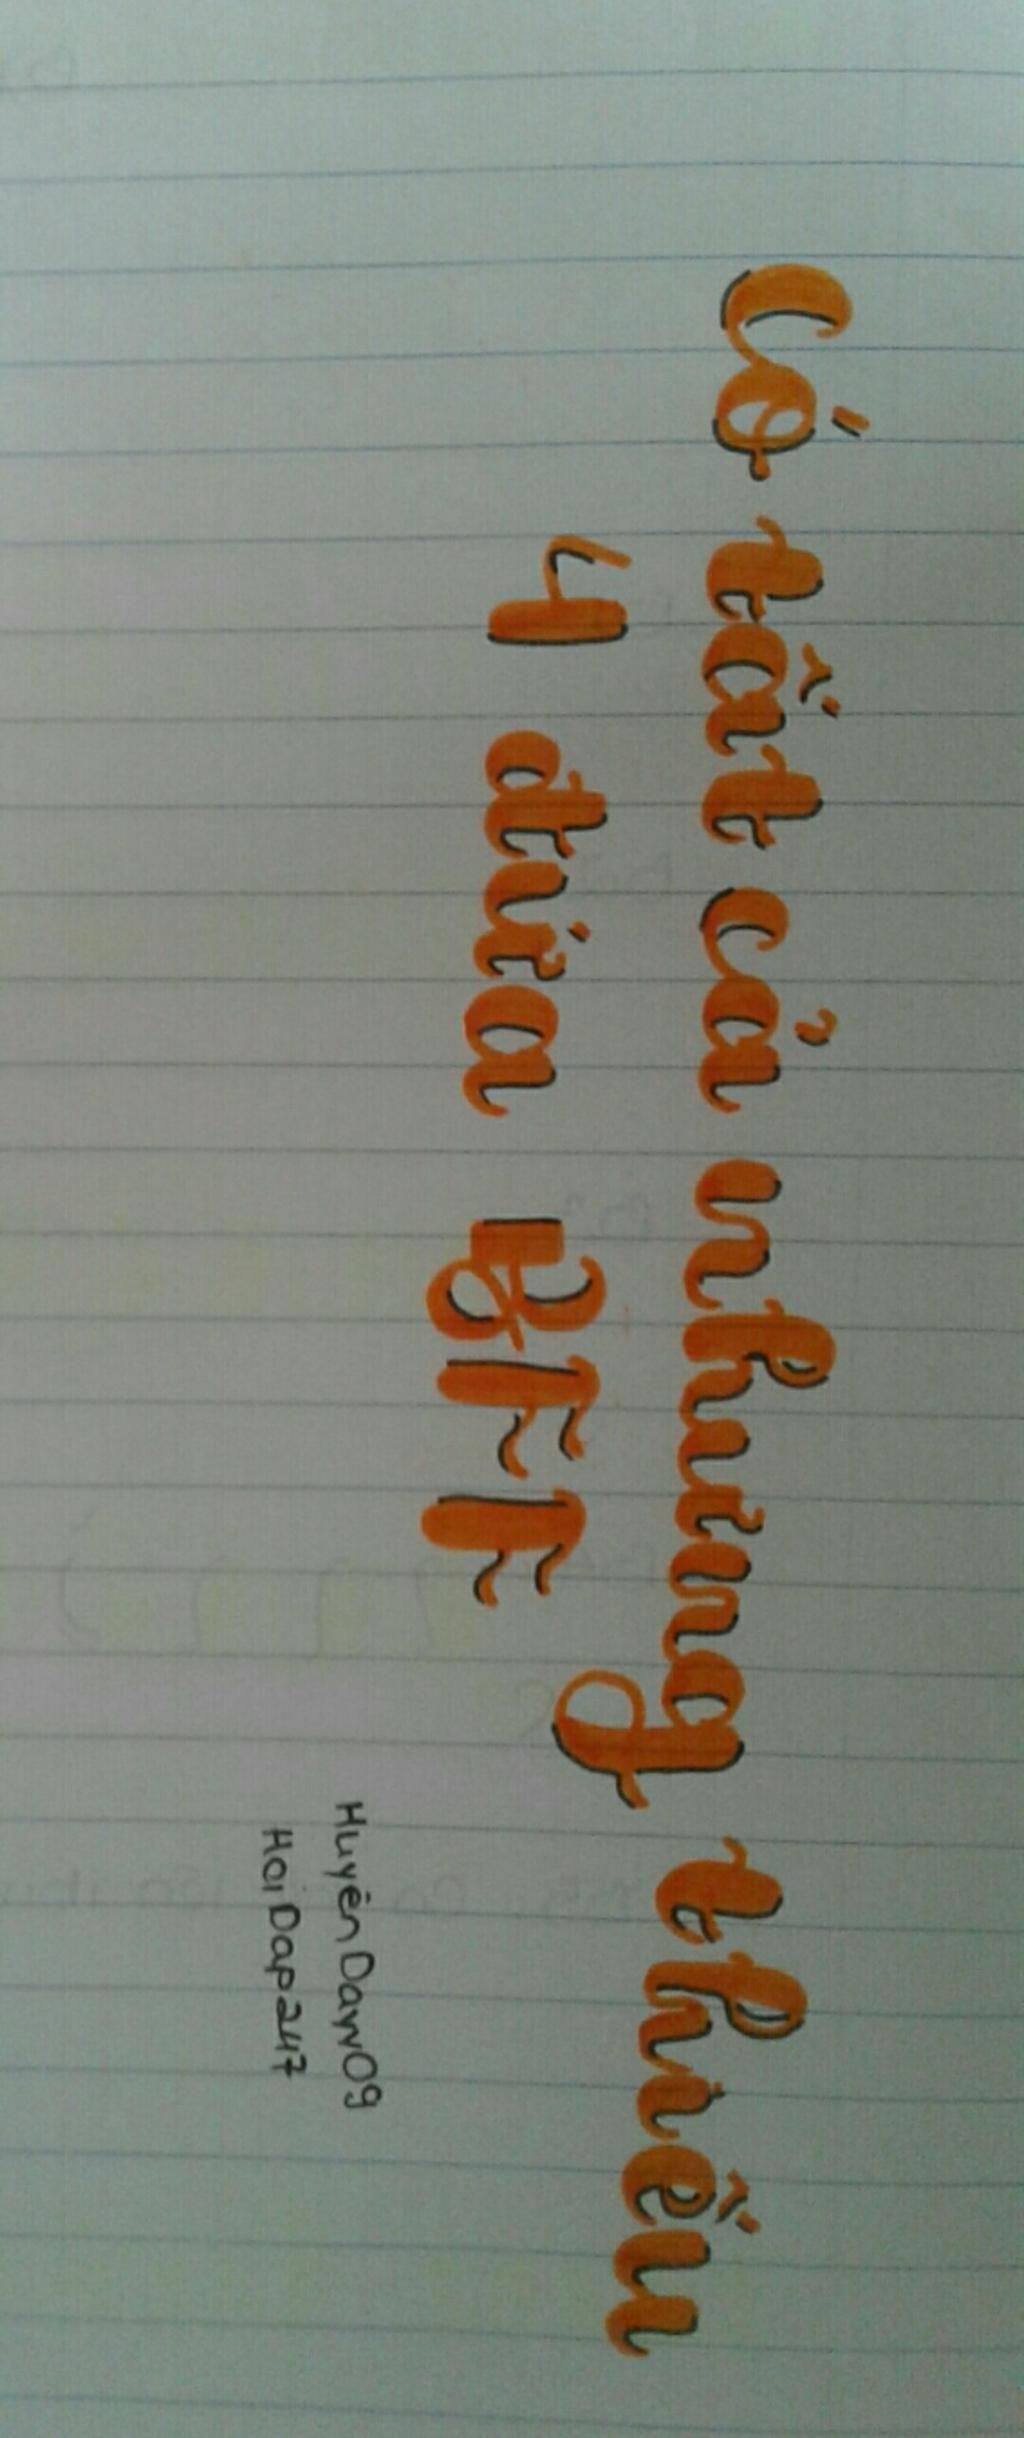 Có tất cả nhưng thiếu
4 đứa BFF
HuyềnDayy09
HoiDap247